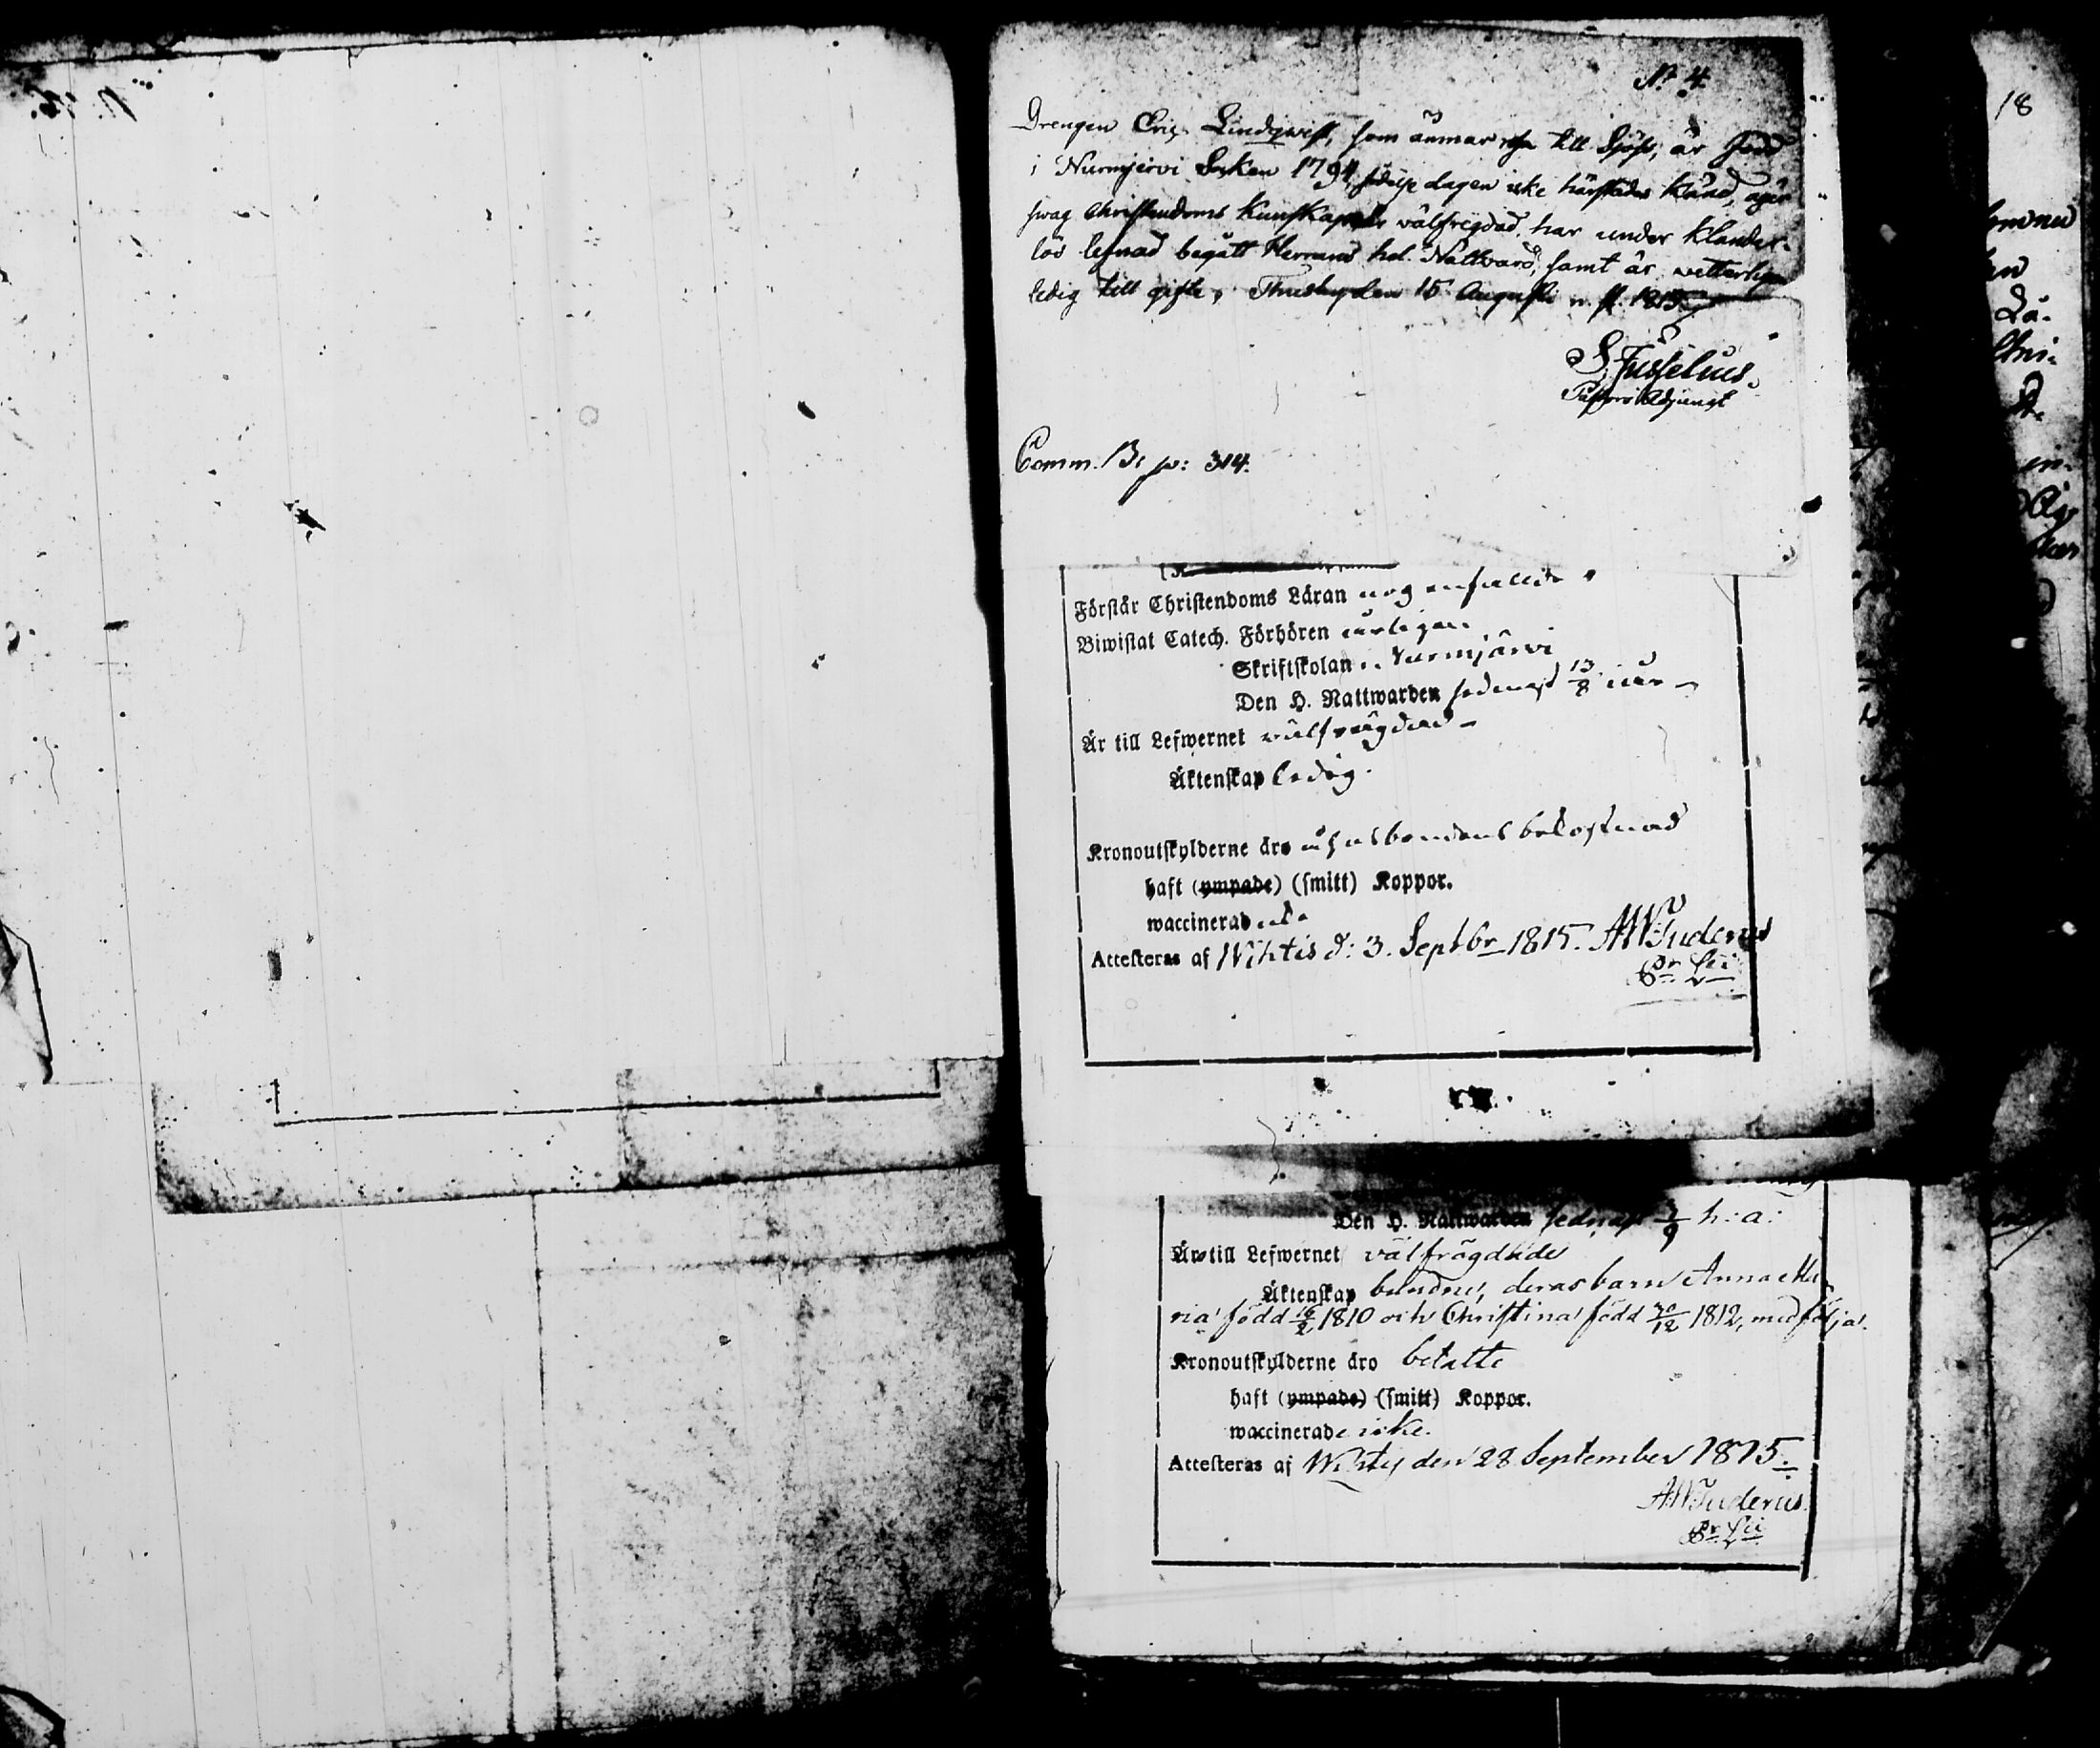 No 4.
Drengen Eric Lindqwist, som ämnar till Sjöss, är född
i Nurmjervi Soken 1794, dagen icke härstädes känd, äger
swag Christendoms Kunskap, är välfregdad, har under klander-
lös lefnad begått Herrans hel. Nattvard, samt är vetterligen
ledig till gifte, Thusby den 15 Augusti n. st. 1815.
S. Fusselius.
Pastors Adjunct
Comm. B: p: 314.
Förstår Christendoms Läran nog enfalldt
Biwistat Catech. Förhören årligen
Skriftskolan i Nurmjärvi
Den H. Nattwarden sednast 13/8 i år
Är till Lefwernet välfrägdad
Äktenskap ledig.
Kronoutskylderne äro på husbondens bekostnad
haft (ympade) (smitt) Koppor.
waccinerad icke
Attesteras af Wihtis d: 3. Septbr 1815. AWTuderus
Den H. Nattwarden sednast 3/9 h: a:
Äro till Lefwernet välfrägdade
Äktenskap bundne, deras barn Anna Ma-
ria född 16/2 1810 och Christina född 30/12 1812, medfölja.
Kronoutskylderne äro betalte
haft (ympade) (smitt) Koppor.
waccinerade icke.
Attesteras af Wihtis den 28 September 1815.
AWTuderus.
18